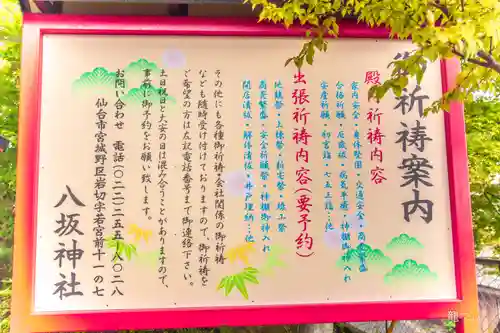 御祈祷案内
殿内祈祷内容
家内安全・身体堅固・交通安全・商
合格祈願・厄歳祓・病気平癒・神棚
安産祈願・初宮詣・七五三詣・他
出張祈祷内容(要予約)
地鎮祭・上棟祭・新宅祭・竣工祭
商売繁盛・安全祈願祭・神棚御神入れ
開店清祓・解体清祓・井戸埋納・他
その他にも各種御祈祷・会社関係の御祈祷
なども随時受け付けておりますので、御祈祷を
ご希望の方は左記電話番号まで御連絡下さい。
土日祝日と大安の日は混み合うことがありますので、
事前に御予約をお願い致します。
お問い合わせ 電話(〇二二)二五五-八〇二八
仙台市宮城野区岩切字若宮前十一の七
八坂神社